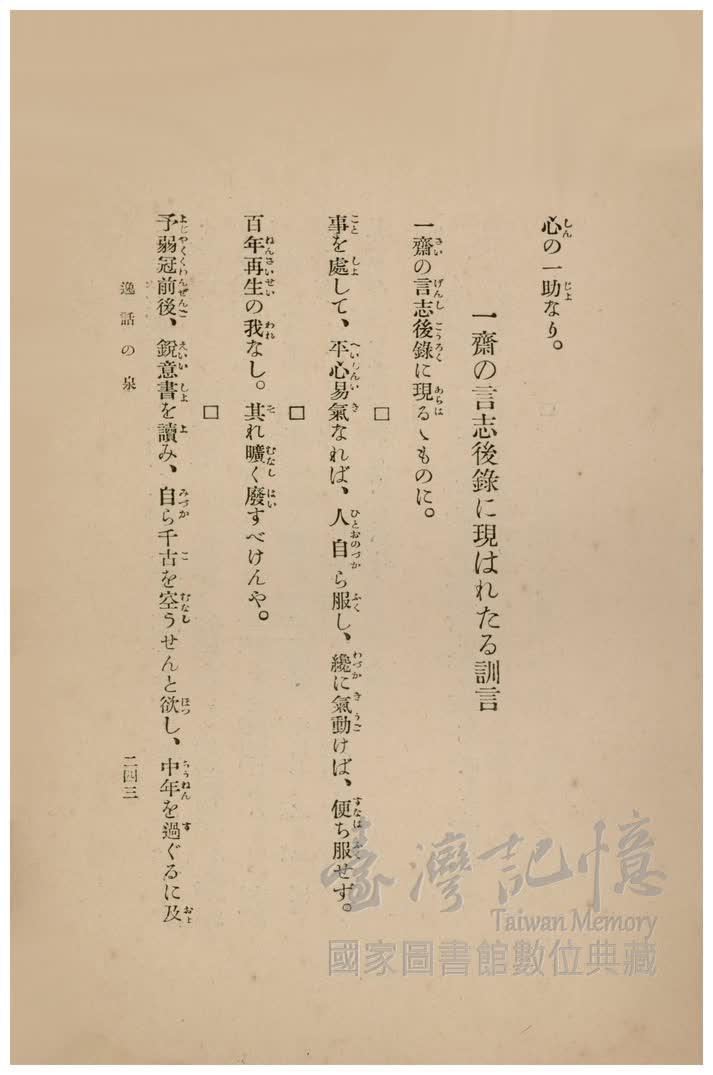 心の一助なり。
一齋の言志後錄に現はれたる訓言
一齋の言志後錄に現るゝものに。
□
事を處して、平心易氣なれば、人自ら服し、纔に氣動けば、便ち服せず。
□
百年再生の我なし。其れ曠く廢すべけんや。
□
予弱冠前後、銳意書を讀み、自ら千古を空うせんと欲し、中年を過ぐるに及
逸話の泉
二四三
臺灣記憶
Taiwan Memory
國家圖書館數位典藏